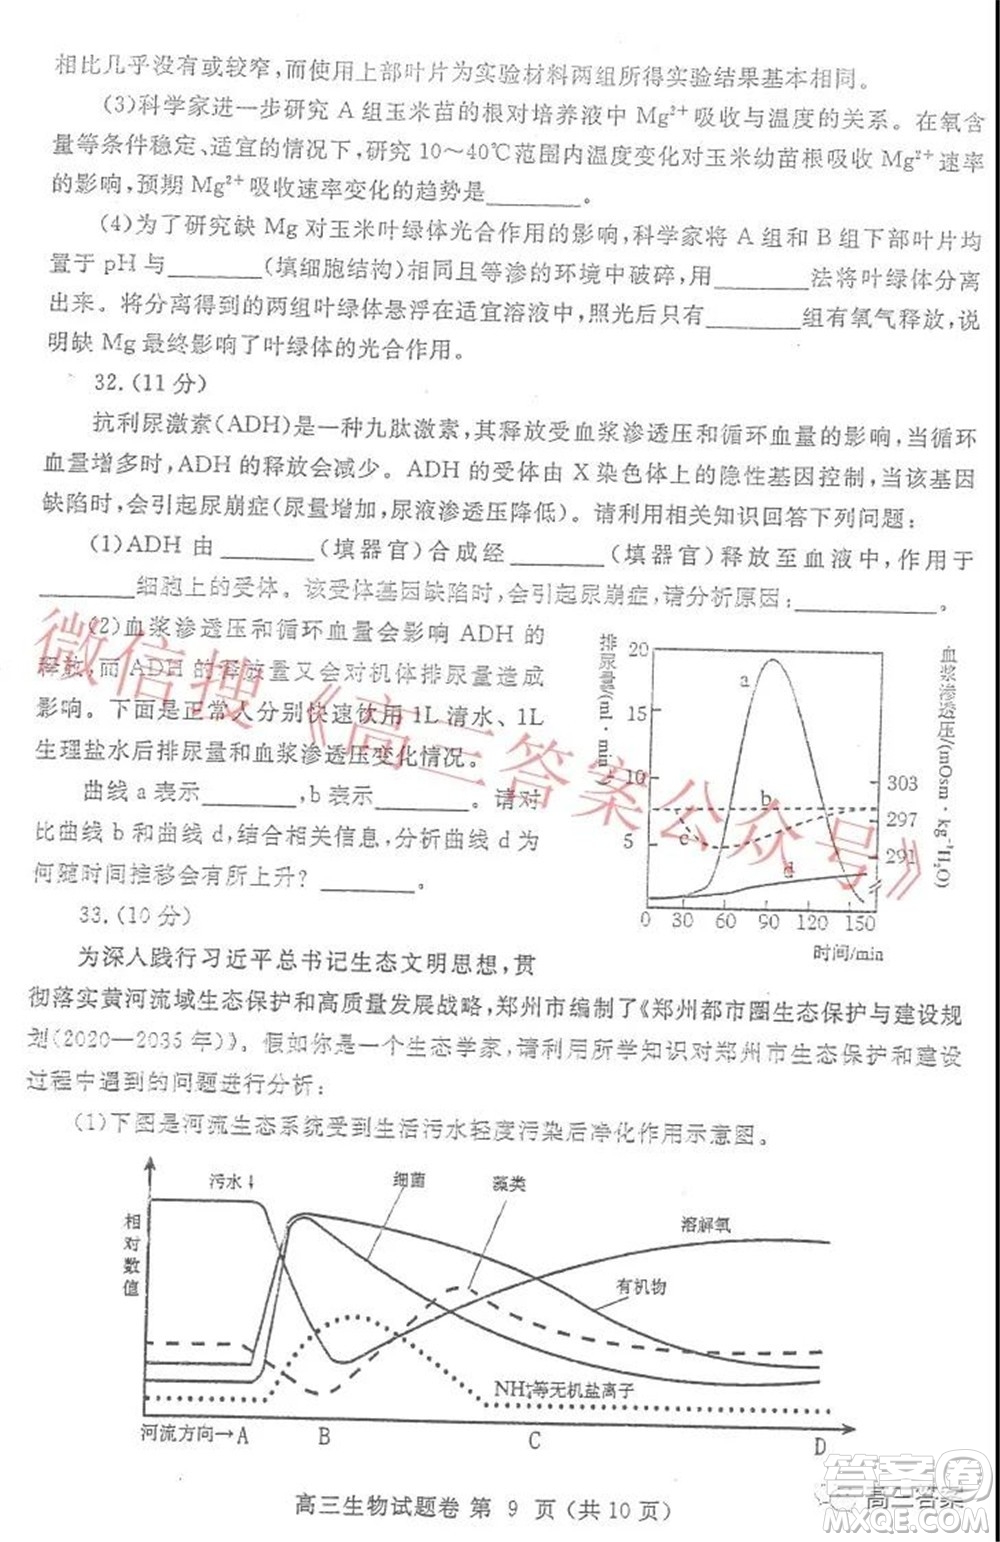 相比几乎没有或较窄,而使用上部叶片为实验材料两组所得实验结果基本相同。
(3)科学家进一步研究 A 组玉米苗的根对培养液中 Mg²⁺ 吸收与温度的关系。在氧含
量等条件稳定、适宜的情况下,研究 10～40℃范围内温度变化对玉米幼苗根吸收 Mg²⁺ 速率
的影响,预期 Mg²⁺ 吸收速率变化的趋势是________。
(4)为了研究缺 Mg 对玉米叶绿体光合作用的影响,科学家将 A 组和 B 组下部叶片均
置于 pH 与________(填细胞结构)相同且等渗的环境中破碎,用________法将叶绿体分离
出来。将分离得到的两组叶绿体悬浮在适宜溶液中,照光后只有________组有氧气释放,说
明缺 Mg 最终影响了叶绿体的光合作用。
32.(11 分)
抗利尿激素(ADH)是一种九肽激素,其释放受血浆渗透压和循环血量的影响,当循环
血量增多时,ADH 的释放会减少。ADH 的受体由 X 染色体上的隐性基因控制,当该基因
缺陷时,会引起尿崩症(尿量增加,尿液渗透压降低)。请利用相关知识回答下列问题:
(1)ADH 由________(填器官)合成经________(填器官)释放至血液中,作用于
________细胞上的受体。该受体基因缺陷时,会引起尿崩症,请分析原因:________。
(2)血浆渗透压和循环血量会影响 ADH 的
释放,而 ADH 的释放量又会对机体排尿量造成
影响。下面是正常人分别快速饮用 1L 清水、1L
生理盐水后排尿量和血浆渗透压变化情况。
曲线 a 表示________,b 表示________。请对
比曲线 b 和曲线 d,结合相关信息,分析曲线 d 为
何随时间推移会有所上升?________。
排尿量(ml·min⁻¹)
20
15
10
5
a
b
c
d
303
297
291
血浆渗透压/(mOsm·kg⁻¹H₂O)
0 30 60 90 120 150
时间/min
33.(10 分)
为深入践行习近平总书记生态文明思想,贯
彻落实黄河流域生态保护和高质量发展战略,郑州市编制了《郑州都市圈生态保护与建设规
划(2020—2035 年)》。假如你是一个生态学家,请利用所学知识对郑州市生态保护和建设
过程中遇到的问题进行分析:
(1)下图是河流生态系统受到生活污水轻度污染后净化作用示意图。
相对数值
污水↓
细菌
藻类
溶解氧
有机物
NH₄⁺等无机盐离子
河流方向→A B C D
高三生物试题卷 第 9 页(共10页)
微信搜《高三答案公众号》
高三答案
答案圈
MXQE.COM